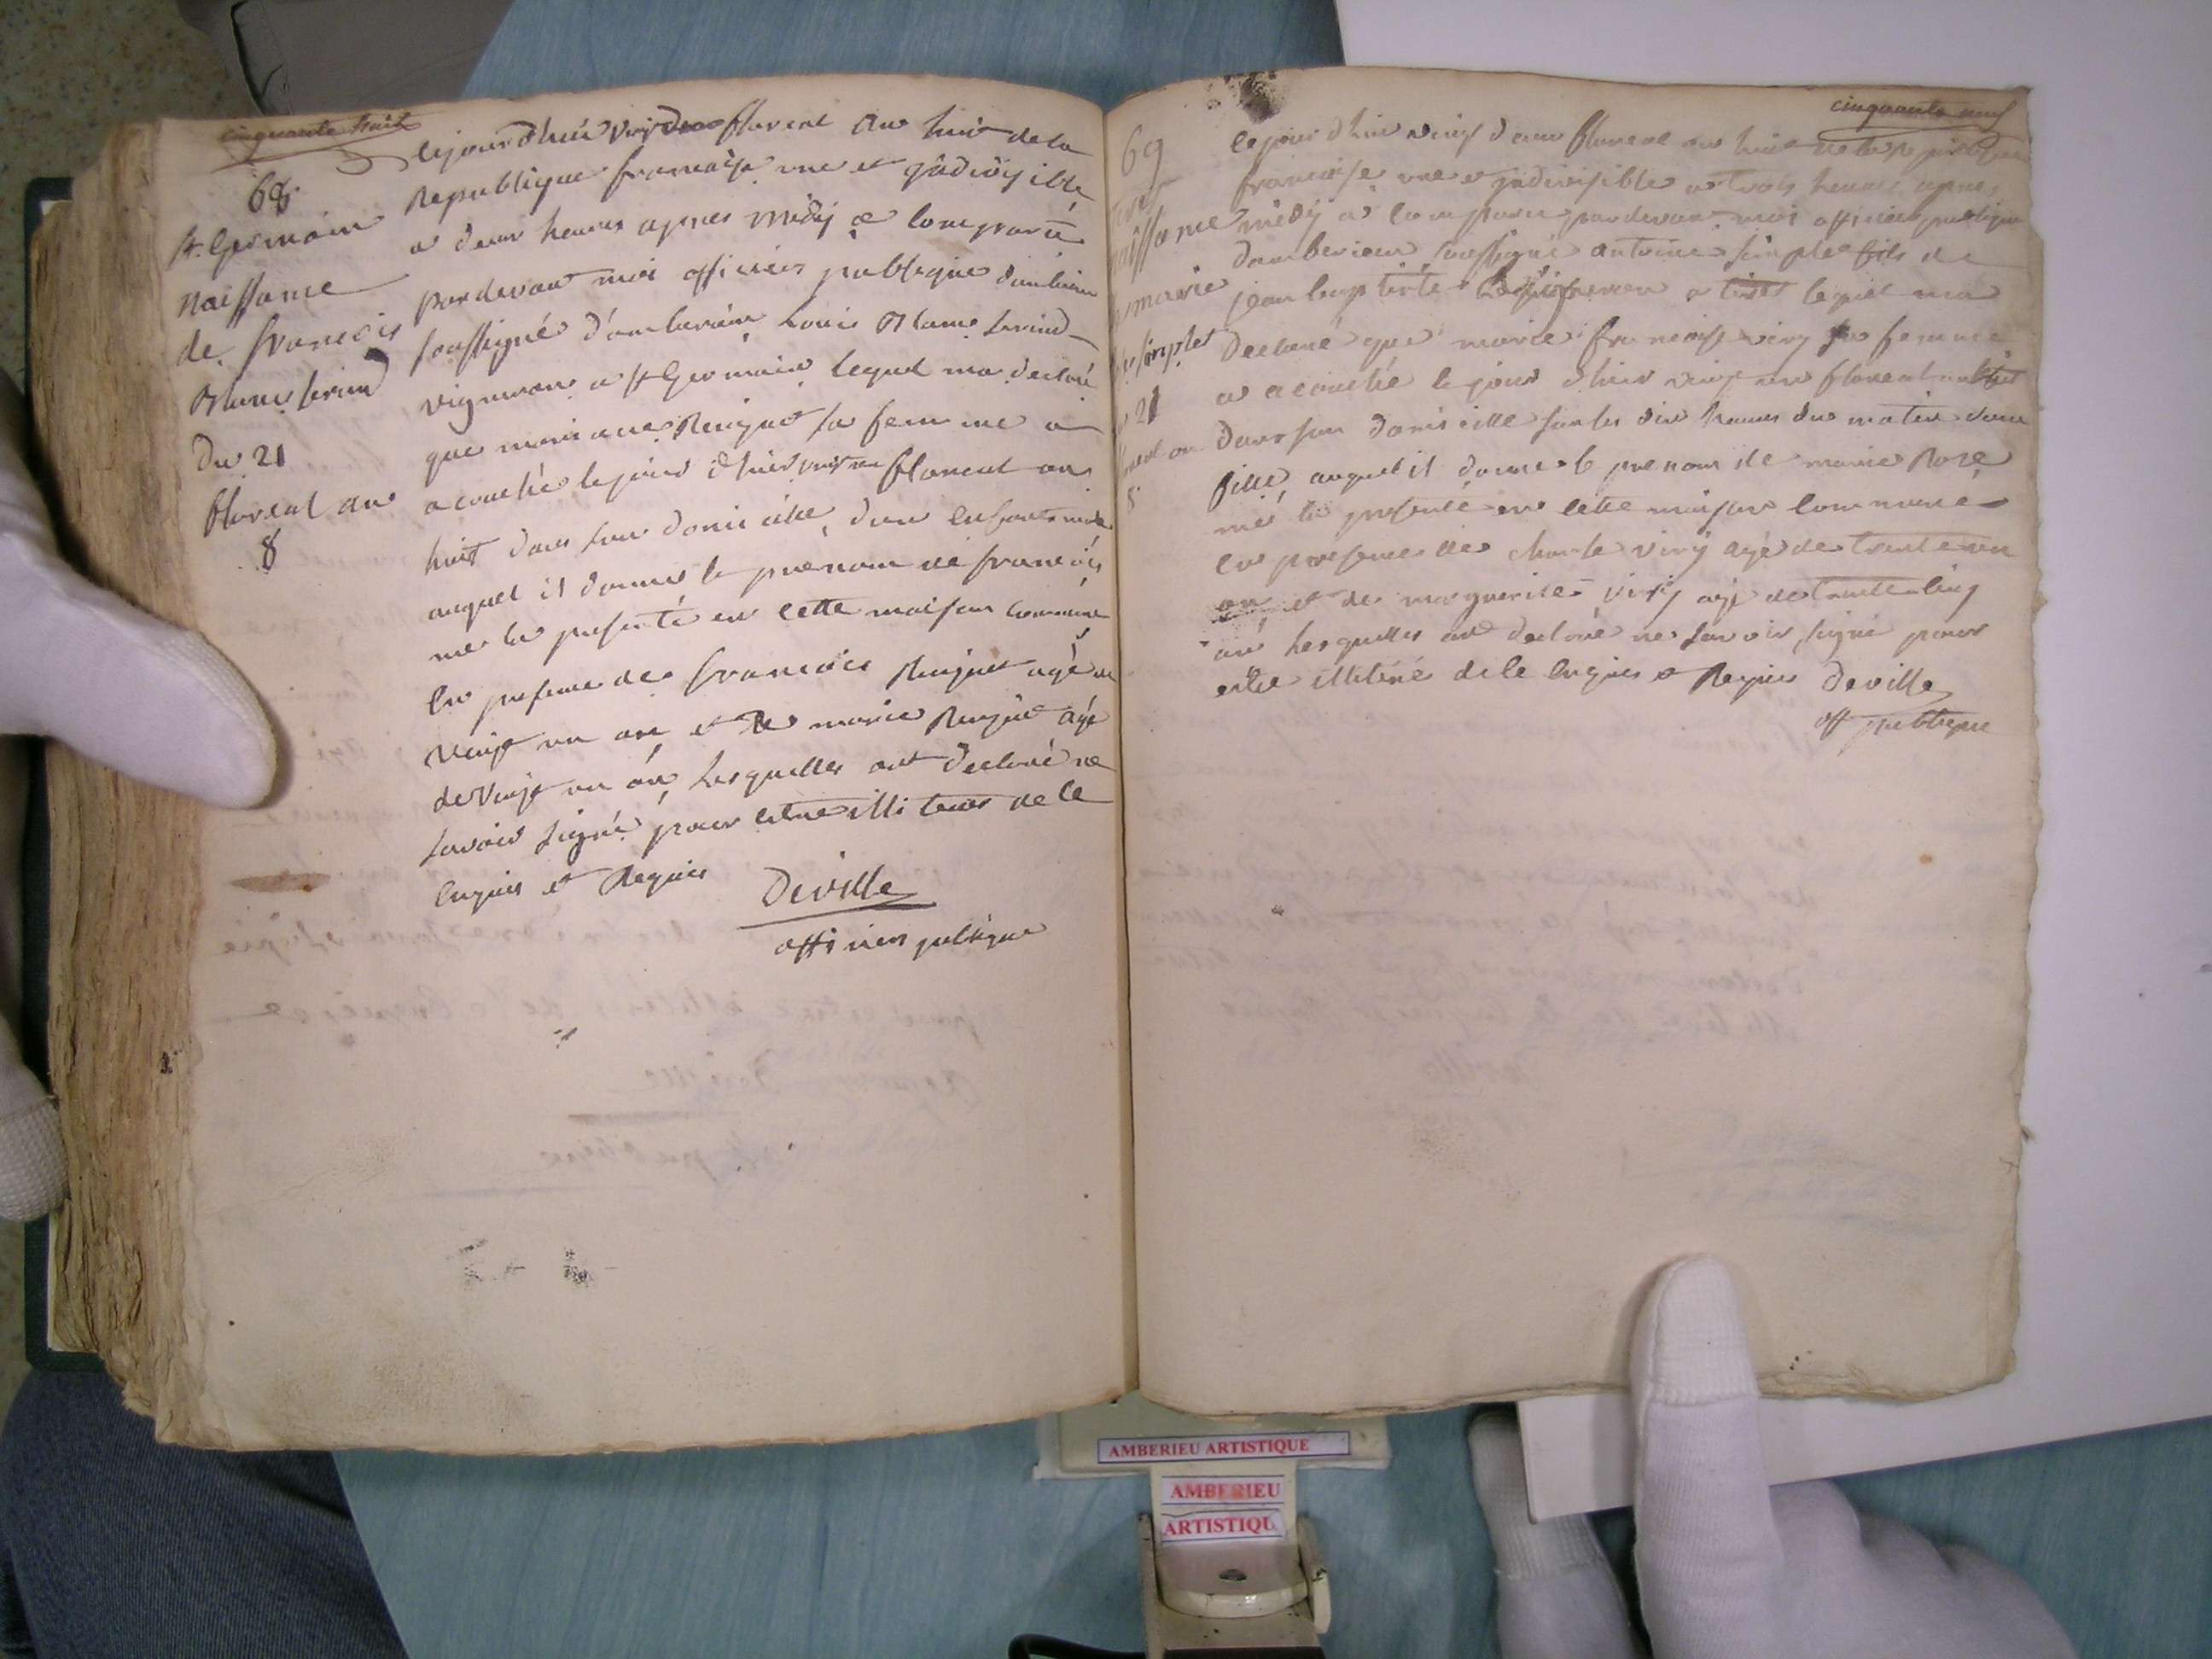 cinquante huit
68
St. Germain
Naissance
de francois
Blanc ferrand
Du 21
floreal an
8
Cejourdhui vingt deux floreal an huit de la
Republique francaise une et jndivisible
a deux heures apres midij a comparu
pardevant moi officier publique dambérieu
soussigné d'amberieux Louis Blanc ferrand
vigneron a St Germain lequel ma declaré
que mariane Reingat sa femme a
acouchée le jour d'hier vingt un floreal an
huit dans son domicille, dun enfant male
auquel il donne le prenom de francois
me la presenté en cette maison commune
en presence de francois agé de
vingt un an et de marie agé
de vingt un an, Lesquelles ont declaré ne
savoir signé pour estre illiteres de ce
enquis et Requis Deville
officier publique
cinquante neuf
69
naissance
marie
simplet
21
floreal an
8
cejourdhui vingt deux floreal an huit de la republique
francoise une et jndivisible a trois heures apres
midij a comparu pardevant moi officier publique
damberieux soussigné antoine simplet fils de
jean baptiste a lequel ma
declaré que marie francoise viry sa femme
a acouchée le jour d'hier vingt un floreal an huit
dans son domicille sur les dix heures du matin dune
fille, auquel il donne le prenom de marie Rose
me la presenté en cette maison commune
en presence de charle virij agé de trente un
an, et de marguerite virij agé de trente cinq
an Lesquelles ont declaré ne savoir signé pour
estre illitéré de ce enquis et Requis Deville
off publique
AMBERIEU ARTISTIQUE
AMBERIEU
ARTISTIQU